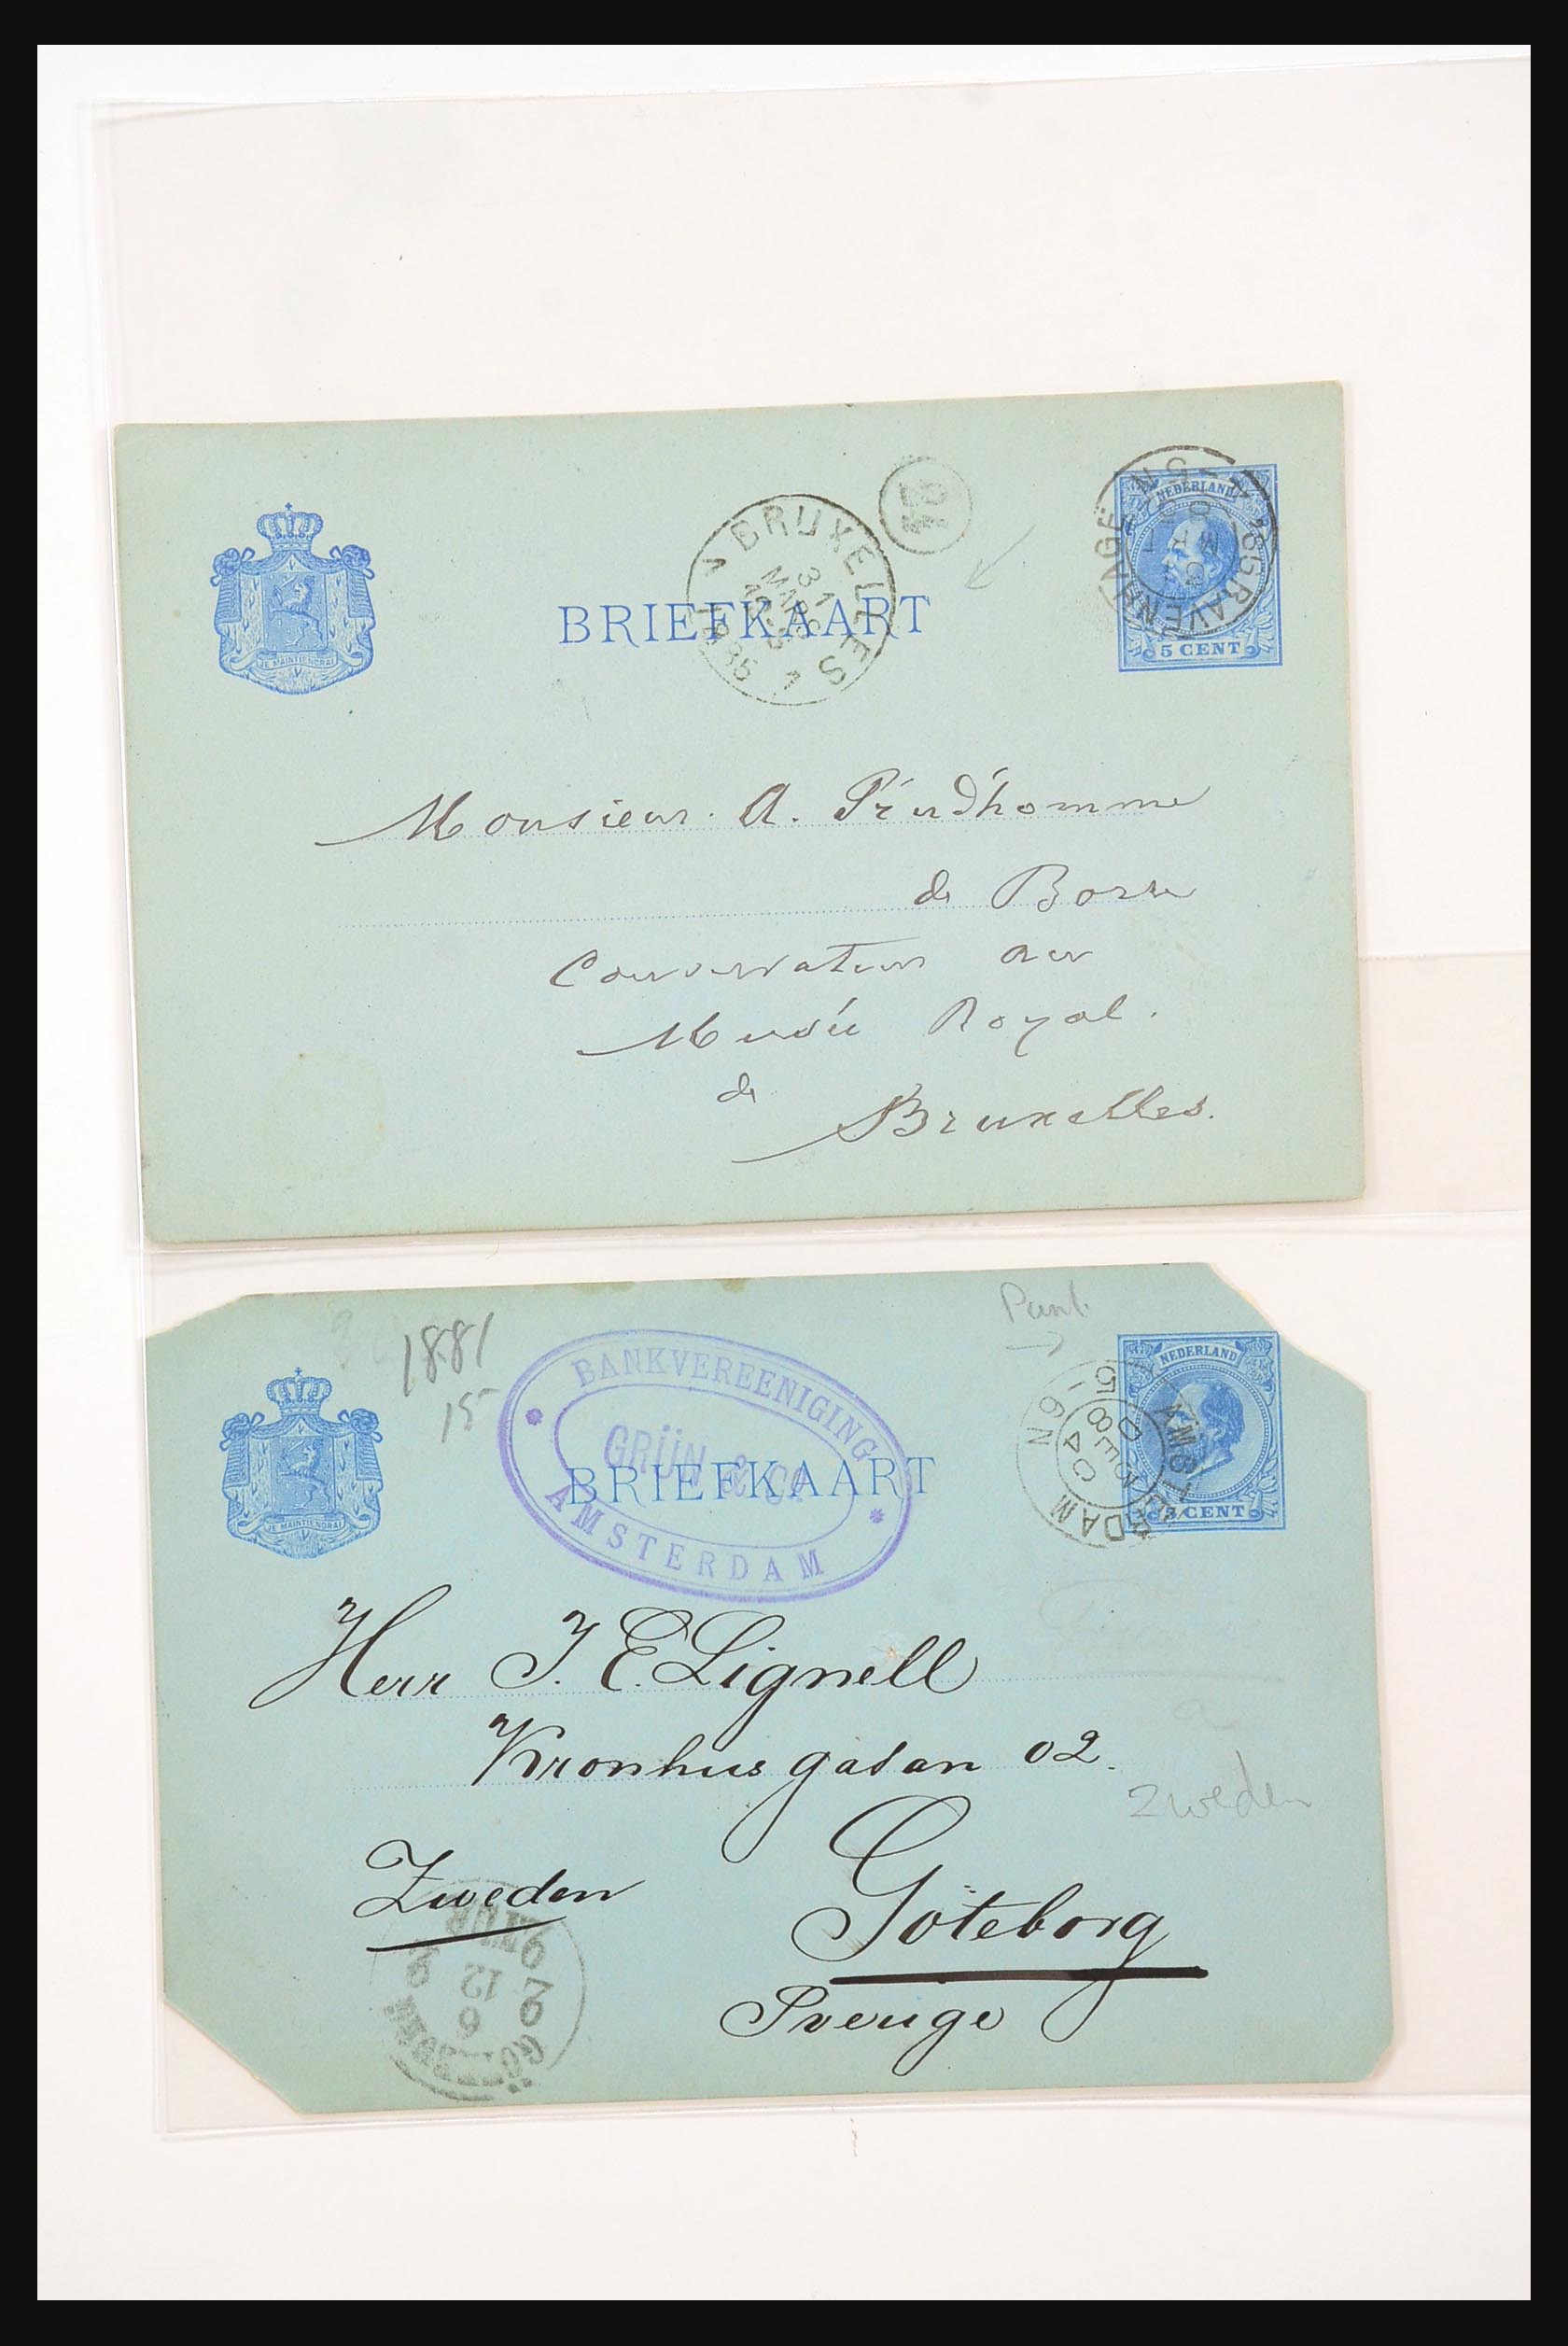 BRUXELLES
31
MARS
1885
1
24
NEDERLAND
'S GRAVENHAGE
BRIEFKAART
5 CENT
JE MAINTIENDRAI
Monsieur. A. Prud'homme
de Borre
Conservateur au
Musée Royal.
de
Bruxelles.
Punt.
1881
15
BANKVEREENIGING
GRÜN & Co
AMSTERDAM
NEDERLAND
AMSTERDAM
4 DEC 85
6N
BRIEFKAART
5 CENT
JE MAINTIENDRAI
Herr J. E. Lignell
Kronhusgatan 02.
Zweden
Zweden
Göteborg
Sverige
6
12